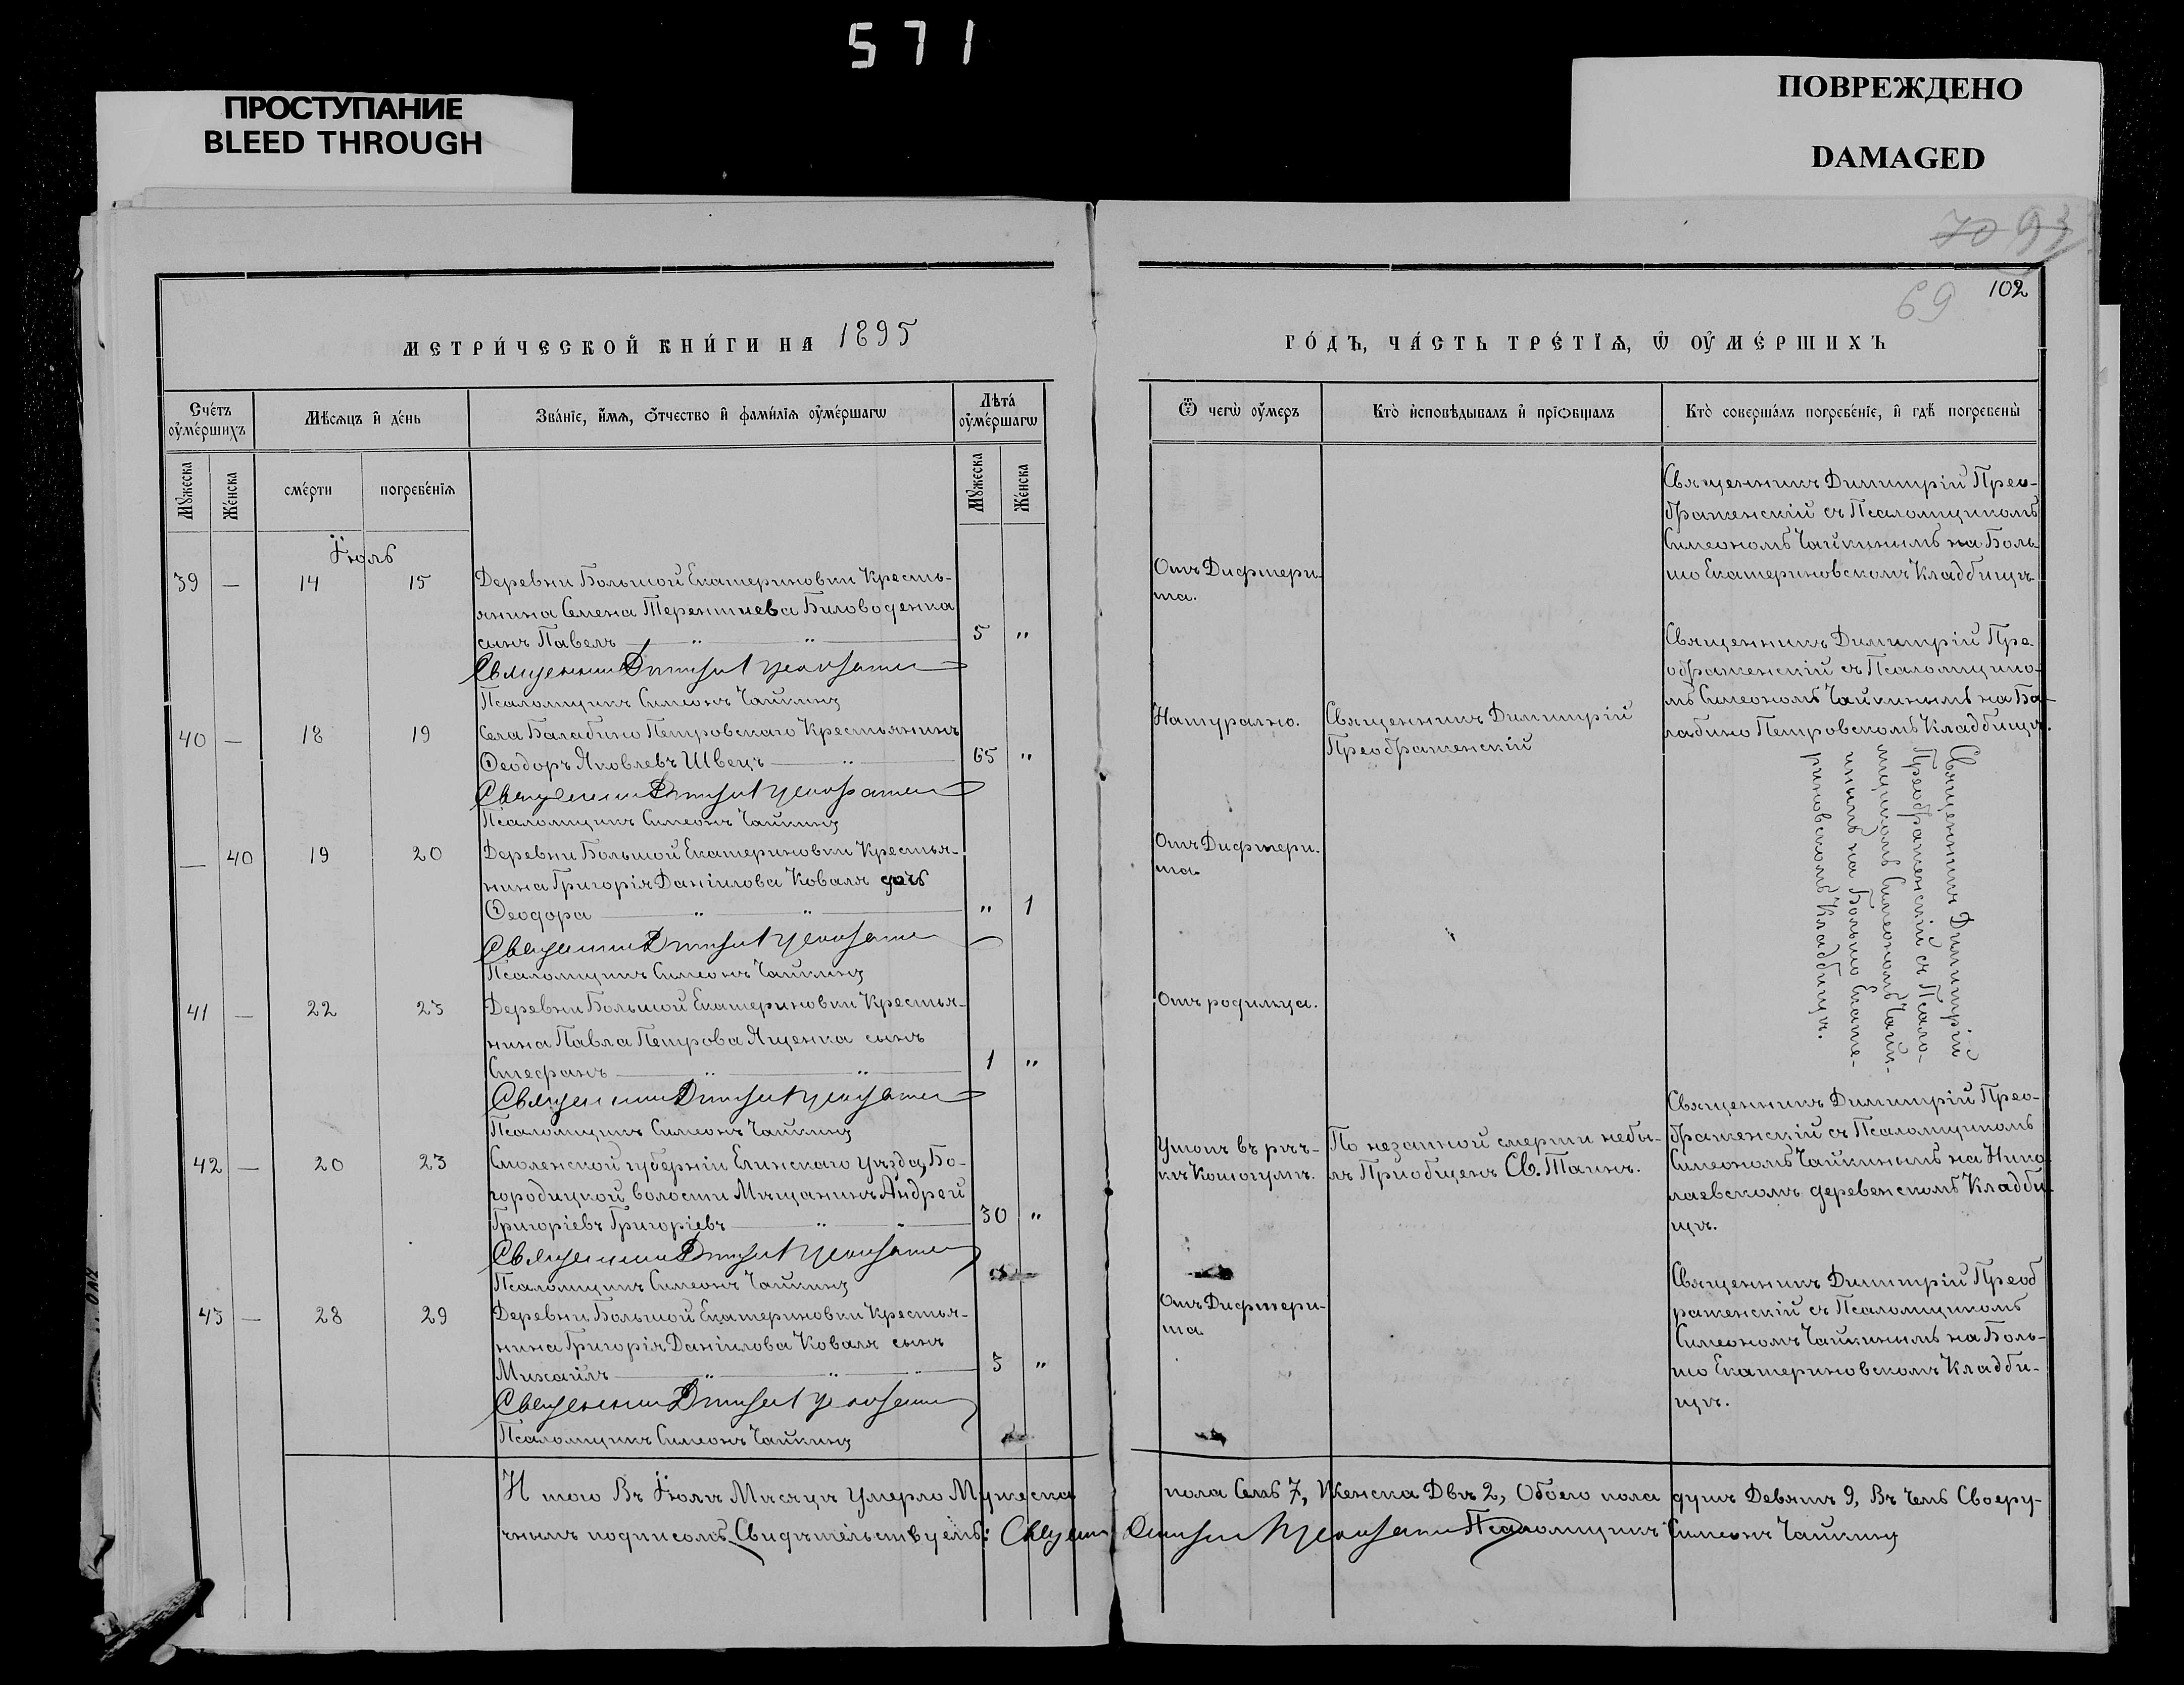 571
ПРОСТУПАНИЕ
BLEED THROUGH
ПОВРЕЖДЕНО
DAMAGED
70 93
69 102
МЕТРИ́ЧЕСКОЙ КНИ́ГИ НА 1895
ГО́ДЪ, ЧА́СТЬ ТРЕ́ТЇѦ, Ѡ҆ ОУ҆МЕ́РШИХЪ
Сче́тъ
оу҆ме́ршихъ
Мѣсѧцъ и҆ де́нь
Зва́нїе, и҆́мѧ, ѻ҆́тчество и҆ фами́лїѧ оу҆ме́ршагѡ
Лѣта̀
оу҆ме́ршагѡ
Ѿ чегѡ̀ оу҆́меръ
Кто̀ и҆сповѣ́дывалъ и҆ прїѻбща́лъ
Кто̀ соверша́лъ погребе́нїе, и҆ гдѣ̀ погребены̀
Мꙋжеска
Же́нска
сме́рти
погребе́нїѧ
Мꙋжеска
Же́нска
Іюль
39 — 14 15
Деревни Большой Екатериновки Кресть-
янина Семена Терентиева Биловоденка
сынъ Павелъ 5 "
Священник Дмитрий Преображен
Псаломщикъ Симеонъ Чайкинъ
Отъ Дифтери-
та.
Священникъ Димитрій Прео-
браженскій съ Псаломщикомъ
Симеономъ Чайкинымъ на Боль-
шо Екатериновскомъ Кладбищѣ
40 — 18 19
Села Балабино Петровскаго Крестьянинъ
Ѳеодоръ Яковлевъ Швецъ 65 "
Священник Дмитрий Преображен
Псаломщикъ Симеонъ Чайкинъ
Натурально.
Священникъ Димитрій
Преображенскій
Священникъ Димитрій Пре-
ображенскій съ Псаломщико-
мъ Симеономъ Чайкинымъ на Ба-
лабино Петровскомъ Кладбищѣ.
— 40 19 20
Деревни Большой Екатериновки Крестья-
нина Григорія Даніилова Коваля дочь
Ѳеодора " 1
Священник Дмитрий Преображен
Псаломщикъ Симеонъ Чайкинъ
Отъ Дифтери-
та
Священникъ Димитрій
Преображенскій съ Псало-
мщикомъ Симеономъ Чайк-
инымъ на Большо Екате-
риновскомъ Кладбищѣ.
41 — 22 23
Деревни Большой Екатериновки Крестья-
нина Павла Петрова Ященка сынъ
Стефанъ 1 "
Священник Дмитрий Преображен
Псаломщикъ Симеонъ Чайкинъ
Отъ родимца.
42 — 20 23
Смоленской губерніи Елинскаго уѣзда, Бо-
городицкой волости Мѣщанинъ Андрей
Григоріевъ Григоріевъ 30 "
Священник Дмитрий Преображен
Псаломщикъ Симеонъ Чайкинъ
Утопъ въ рѣч-
кѣ Кошогумѣ.
По незапной смерти небы-
лъ Приобщенъ Св. Таинъ.
Священникъ Димитрій Прео-
браженскій съ Псаломщикомъ
Симеономъ Чайкинымъ на Нико-
лаевскомъ деревенскомъ Кладби-
щѣ.
43 — 28 29
Деревни Большой Екатериновки Крестья-
нина Григорія Даніилова Коваля сынъ
Михаилъ 3 "
Священник Дмитрий Преображен
Псаломщикъ Симеонъ Чайкинъ
Отъ Дифтери-
та
Священникъ Димитрій Преоб
раженскій съ Псаломщикомъ
Симеономъ Чайкинымъ на Боль-
шо Екатериновскомъ Кладби-
щѣ.
И того Въ Іюлѣ Мѣсяцѣ умерло Мужеска пола Семь 7, Женска Двѣ 2, Обоего пола душъ Девять 9, Въ чемъ Своеру-
чнымъ подписомъ Свидѣтельствуемъ: Священ Дмитрий Преображен Псаломщикъ Симеонъ Чайкинъ